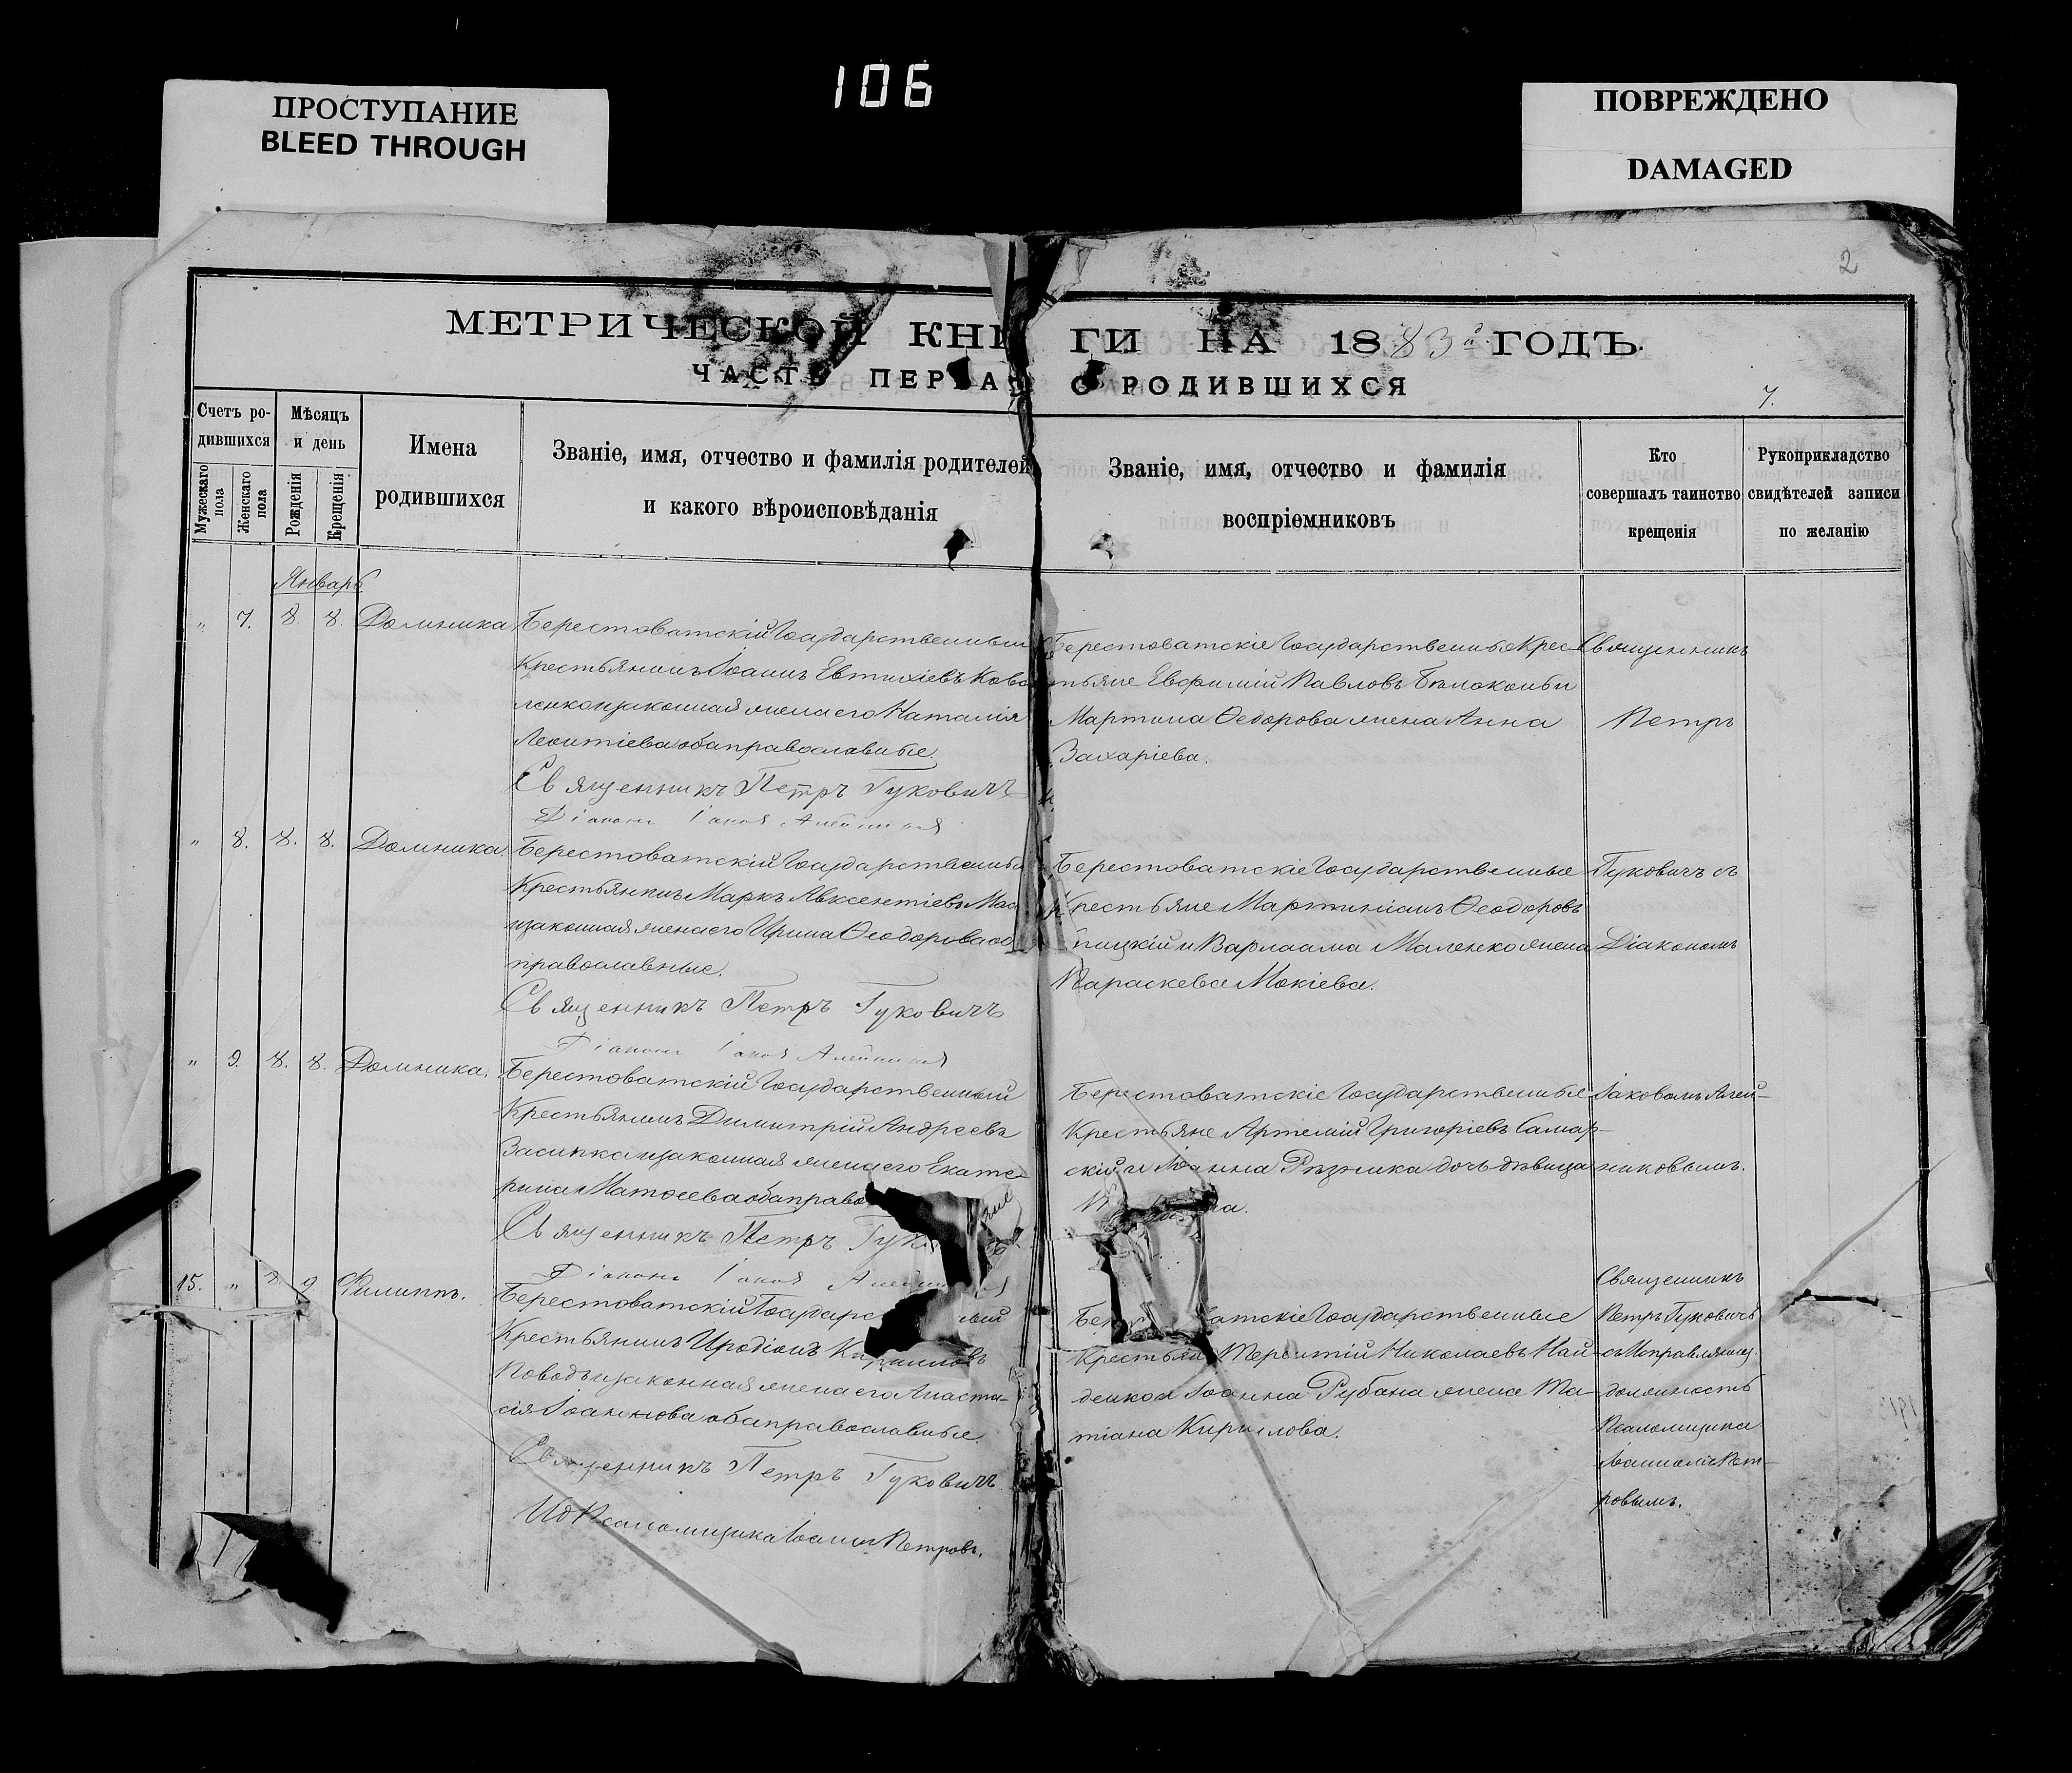 106
ПРОСТУПАНИЕ
BLEED THROUGH
ПОВРЕЖДЕНО
DAMAGED
2
МЕТРИЧЕСКОЙ КНИГИ НА 1883й ГОДЪ.
ЧАСТЬ ПЕРВАЯ О РОДИВШИХСЯ
7.
Счетъ ро-
дившихся
Мужескаго пола
Женскаго пола
Мѣсяцъ
и день
Рожденія
Крещенія
Имена
родившихся
Званіе, имя, отчество и фамилія родителей
и какого вѣроисповѣданія
Званіе, имя, отчество и фамилія
воспріемниковъ
Кто
совершалъ таинство
крещенія
Рукоприкладство
свидѣтелей записи
по желанію
Январь
" 7. 8. 8. Домника
Берестоватскій Государственный
Крестьянинъ Іоаннъ Евтихіевъ Кова
ленко и законная жена его Наталія
Леонтіева оба православные.
Священникъ Петръ Гуковичъ
Діаконъ Іаковъ
Берестоватскіе Государственные Крес
тьяне Евфимій Павловъ Бѣлоконь и
Мартина Ѳедорова жена Анна
Захаріева.
Священникъ
Петръ
" 8. 8. 8. Домника.
Берестоватскій Государственный
Крестьянинъ Маркъ Авксентіевъ
и законная жена его Ирина Ѳеодорова об
православные.
Священникъ Петръ Гуковичъ
Діаконъ Іаковъ
Берестоватскіе Государственные
Крестьяне Мартиніанъ Ѳеодоровъ
и Варлаама Маленко жена
Параскева Мокіева.
Гуковичъ съ
Діакономъ
" 9. 8. 8. Домника.
Берестоватскій Государственный
Крестьянинъ Димитрій Андреевъ
Засипка и законная жена его Екате-
рина Матѳеева оба право
Священникъ Петръ
Діаконъ Іаковъ
Берестоватскіе Государственные
Крестьяне Артемій Григоріевъ Самар-
скій и Іоанна Рѣзника дочь дѣвица
Іаковомъ Алей-
никовымъ.
15. " 8. 9. Филиппъ.
Берестоватскій
Крестьянинъ Иродіонъ Кирилловъ
Поводъ и законная жена его Анаста-
сія Іоаннова оба православные.
Священникъ Петръ Гуковичъ
Ид Псаломщика Іоаннъ Петровъ.
Государственные
Терентій Николаевъ Най-
денко и Іоанна Рубана жена Та-
тіана Кирилова.
Священникъ
Петръ Гуковичъ
съ Исправляющ.
должность
Псаломщика
Іоанномъ Пет-
ровымъ.